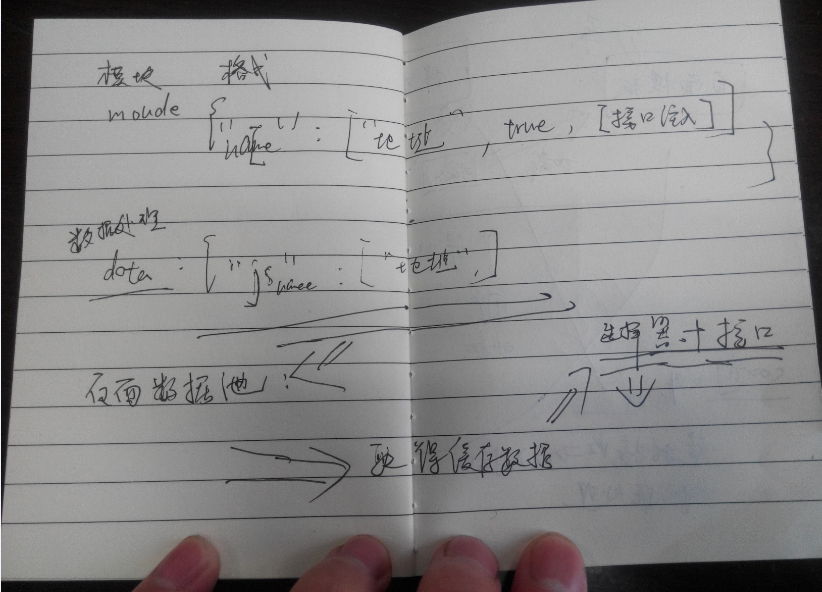 模块 格式
moude {"name" : ["地址", true, [接口注入]]}
数据处理
data : {"jsname" : ["地址",]
选择器 + 接口
页面数据池 :
取得缓存数据